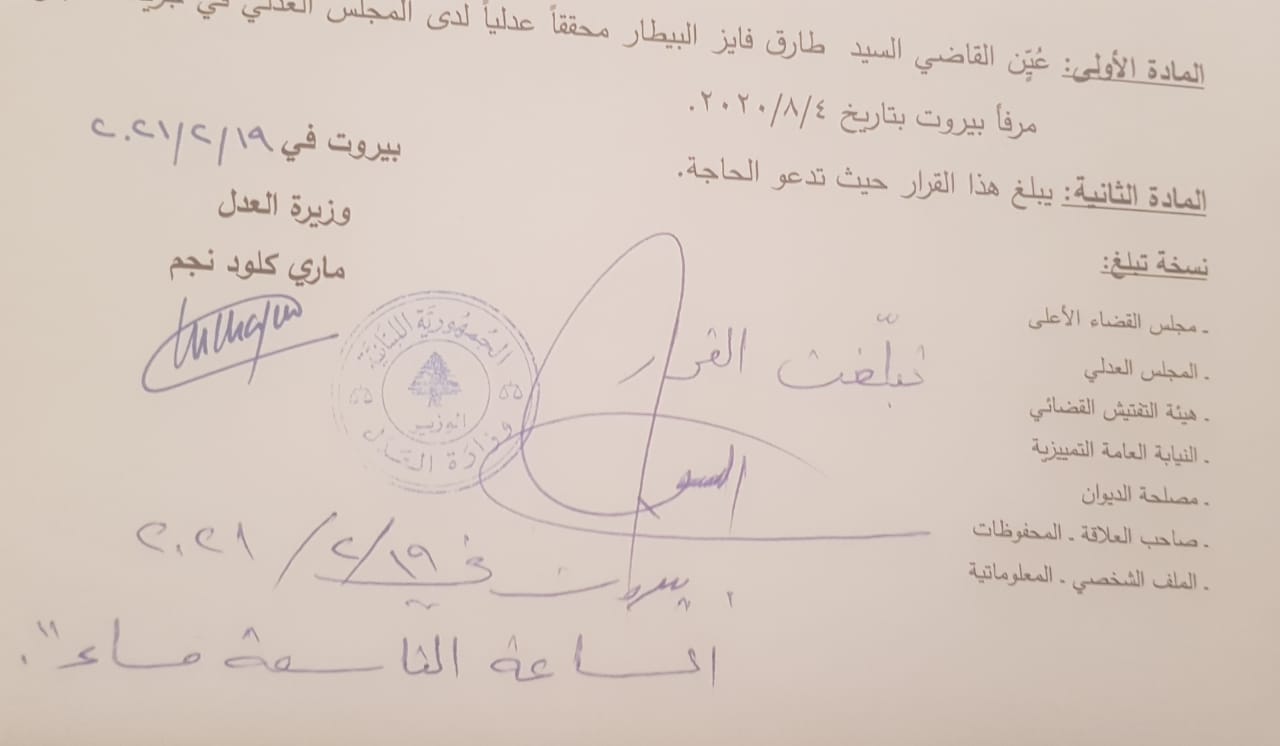 المادة الأولى: عُيّن القاضي السيد طارق فايز البيطار محققاً عدلياً لدى المجلس العدلي في
مرفأ بيروت بتاريخ ٢٠٢٠/٨/٤.
المادة الثانية: يبلغ هذا القرار حيث تدعو الحاجة.
بيروت في ٢٠٢١/٢/١٩
وزيرة العدل
ماري كلود نجم
نسخة تبلغ:
ـ مجلس القضاء الأعلى
ـ المجلس العدلي
ـ هيئة التفتيش القضائي
ـ النيابة العامة التمييزية
ـ مصلحة الديوان
ـ صاحب العلاقة ـ المحفوظات
ـ الملف الشخصي ـ المعلوماتية
الجمهورية اللبنانية
الوزير
وزارة العدل
تبلّغت القرار
بيروت في ٢٠٢١/٢/١٩
الساعة التاسعة مساءً.